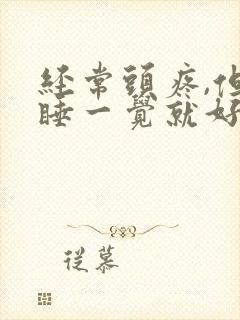 经常頭疼,但
睡一覺就好
從慕